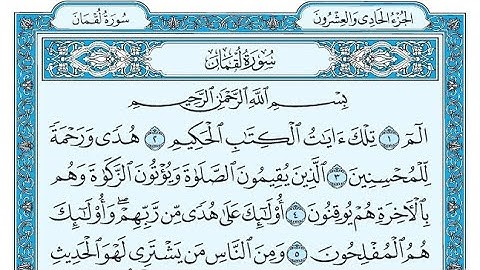 الجزء الحادي والعشرون
سورة لقمان
سُورَةُ لُقْمَان
بِسْمِ ٱللَّهِ ٱلرَّحْمَٰنِ ٱلرَّحِيمِ
الٓمٓ ١ تِلْكَ ءَايَٰتُ ٱلْكِتَٰبِ ٱلْحَكِيمِ ٢ هُدًى وَرَحْمَةً
لِّلْمُحْسِنِينَ ٣ ٱلَّذِينَ يُقِيمُونَ ٱلصَّلَوٰةَ وَيُؤْتُونَ ٱلزَّكَوٰةَ وَهُم
بِٱلْءَاخِرَةِ هُمْ يُوقِنُونَ ٤ أُو۟لَٰٓئِكَ عَلَىٰ هُدًى مِّن رَّبِّهِمْ ۖ وَأُو۟لَٰٓئِكَ
هُمُ ٱلْمُفْلِحُونَ ٥ وَمِنَ ٱلنَّاسِ مَن يَشْتَرِى لَهْوَ ٱلْحَدِيثِ